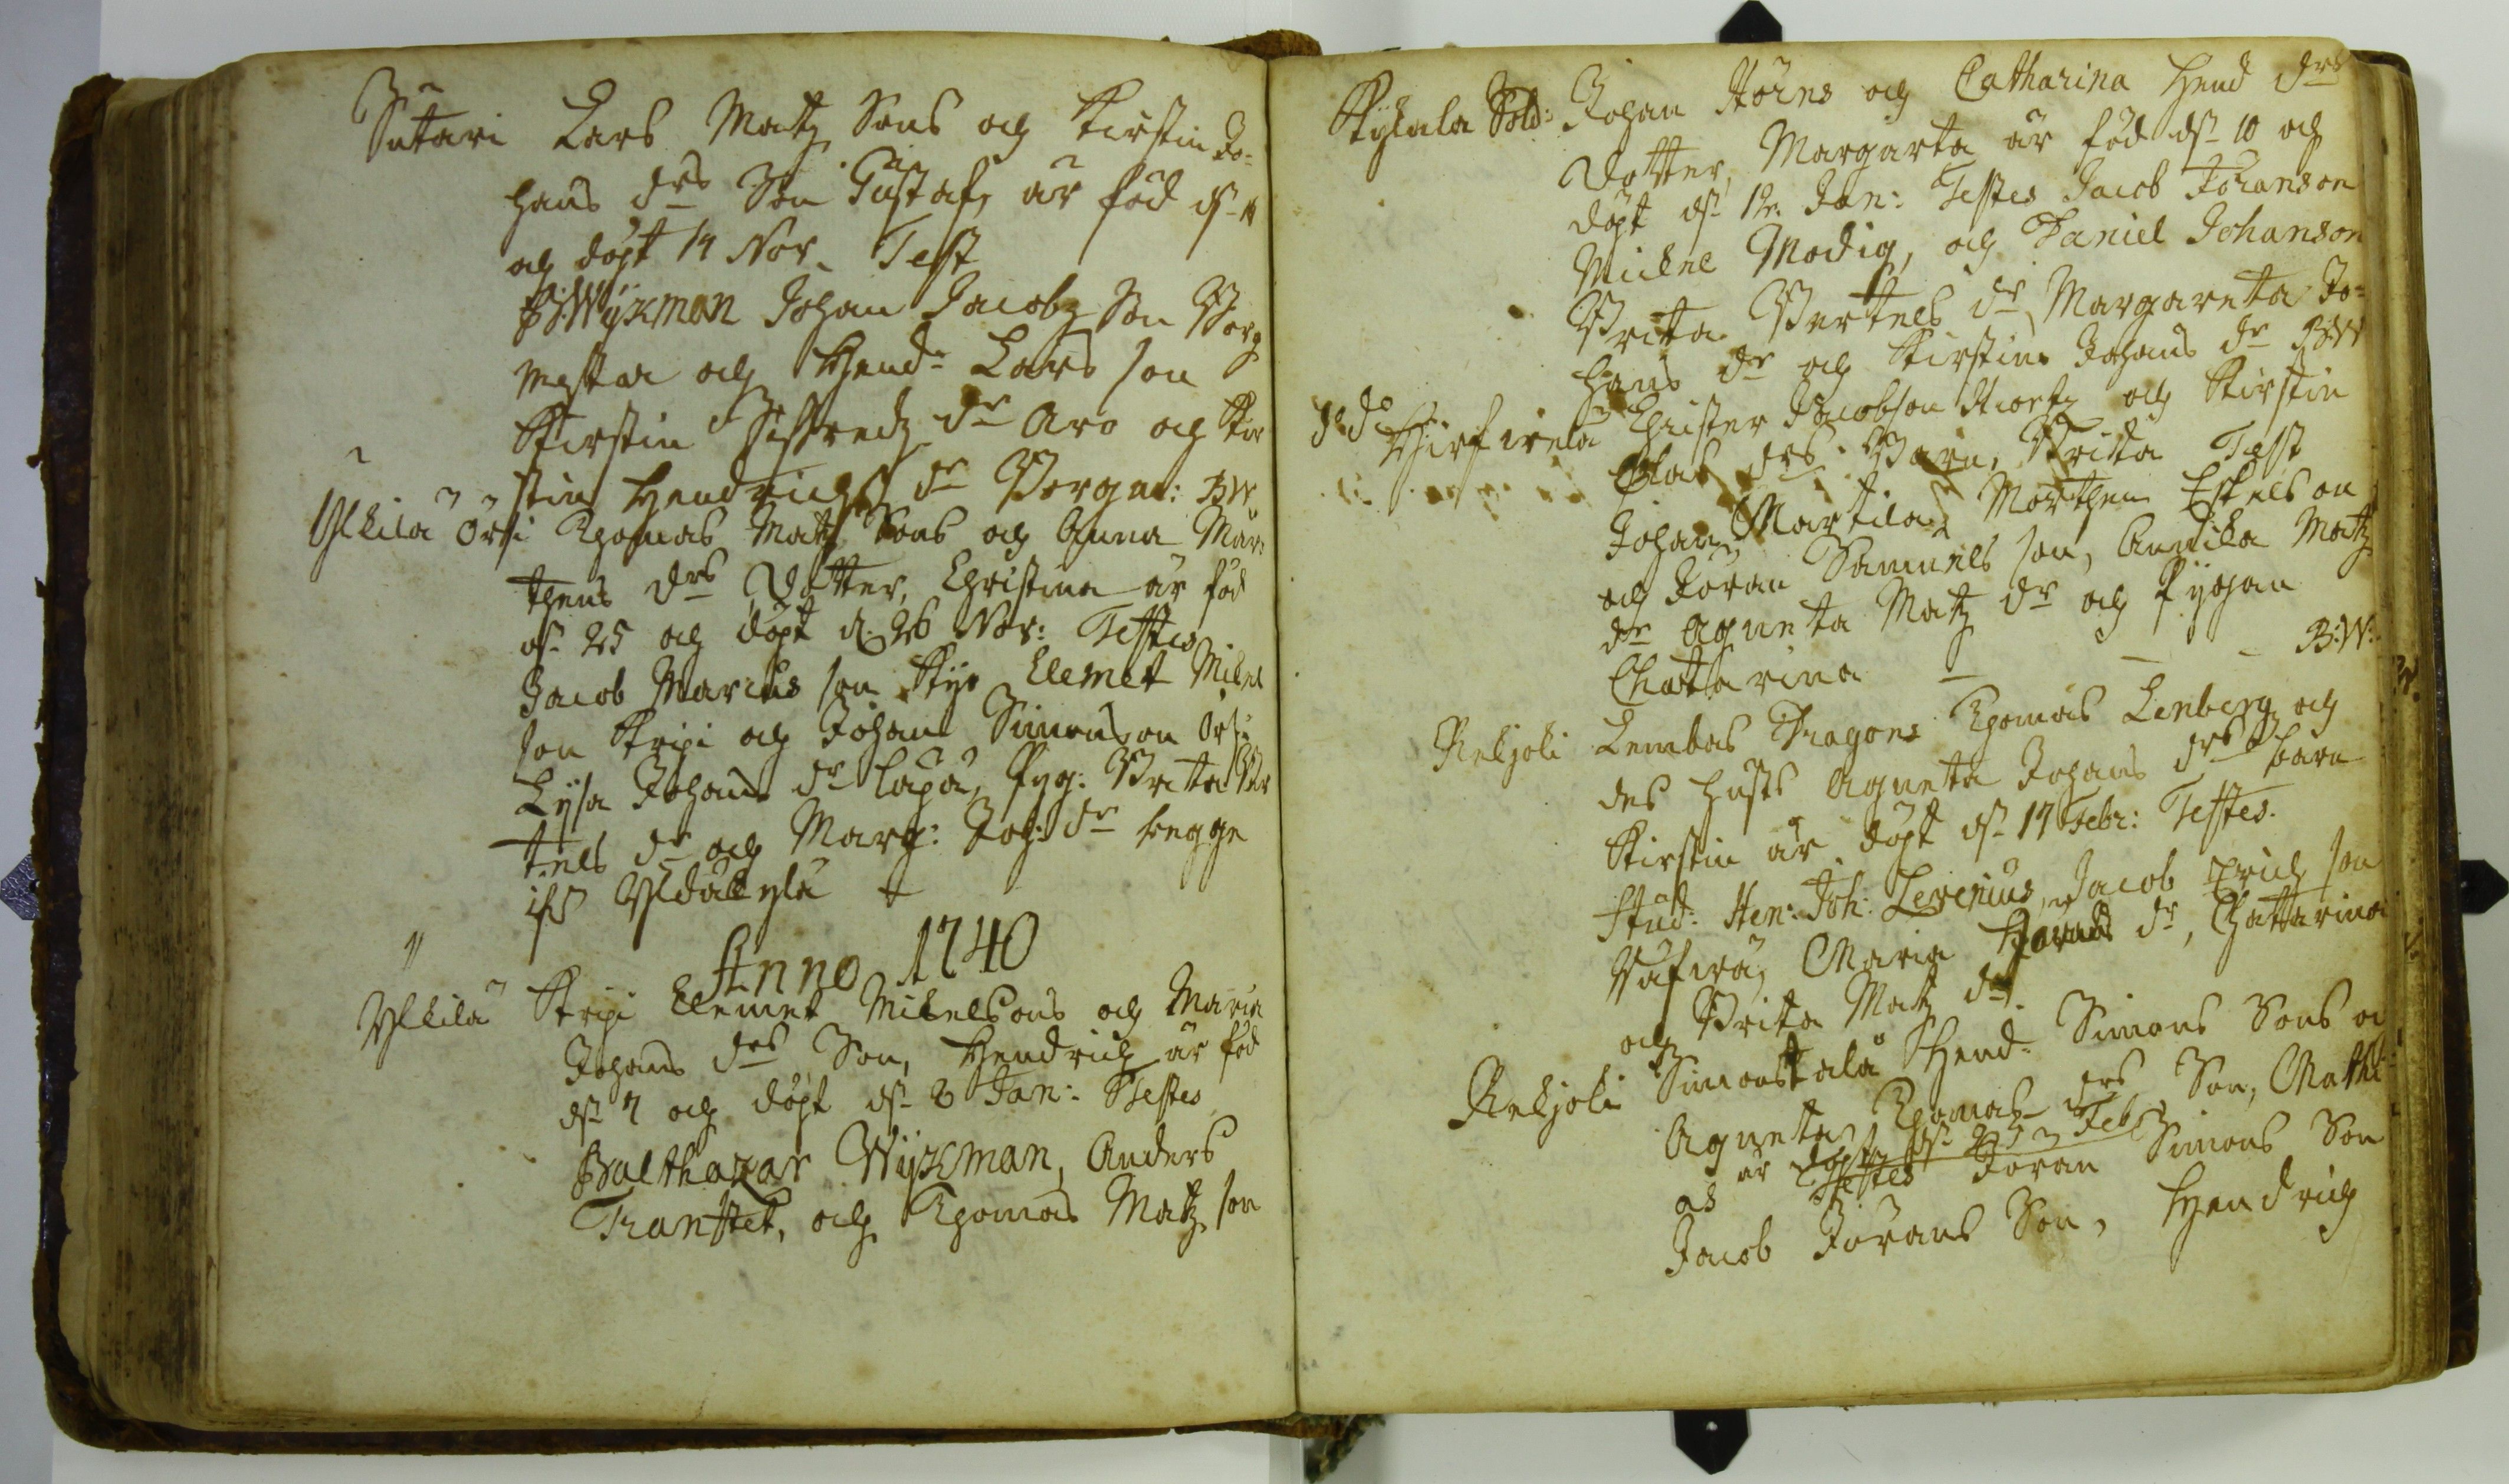 Sutari Lars Matz Sons och Kirstin Jo=
hans drs Son Gustaf, är född d. 11
och döpt 14 Nov. Test
B:Wijkman Johan Jacobz Son Borg
mestar och Hend: Lars son
Kirstin Sifredz dr Aro och Kir
stin Hendrichs dr Borgm: BW
Ylkilä Örsi Thomas Matz Sons och Anna Mår
thens drs Dotter, Christina är född
d. 25 och döpt d. 26 Nov: Testes
Jacob Marcus son Clemet Mikel
son Kripi och Johan Simonson Örsi
Lysa Johans dr Lapä, Pyg: Brita Ber
tels dr och Marg: Joh: dr begge
ifrå
Anno 1740
Ylkilä Kripi Clemet Mikelsons och Maria
Johans drs Son, Hendrich är född
d. 7 och döpt d. 8 Jan: Testes
Balthazar Wijkman, Anders
Tranflet, och Thomas Matz son
Kykala Sold: Johan Hörns och Catharina Hend drs
Dotter, Margarta är född d. 10 och
döpt d. 12. Jan: Testes Jacob Johanson
Mickel Modig, och Daniel Johanson
Brita Bertels dr, Margareta Jo=
hans dr och Kirstin Johans dr B:W
do do Hirfwelä Christer Jacobson och Kirstin
Olas drs Barn, Brita Test
Johan Martila, Morthen Eskelson
och Jöran Samuels son, Annika Matz
dr Agneta Matz dr och Pyghan
Chatarina - - - B:W:
Rekjoki Lembos Dragons Thomas Lenberg och
des husts Agneta Johans drs barn
Kirstin är döpt d. 17 Febr: Testes.
Stud: Hen: Joh: Lerenius, Jacob Erich son
Maria dr, Chattarina
och Brita Matz dr
Rekjoki Simonstalä Hend: Simons Sons oc
Agneta Thomas drs Son, Mathi
as är döpt d. 25 Feb
Testes Jöran Simons Son
Jacob Jörans Son, Hendrich